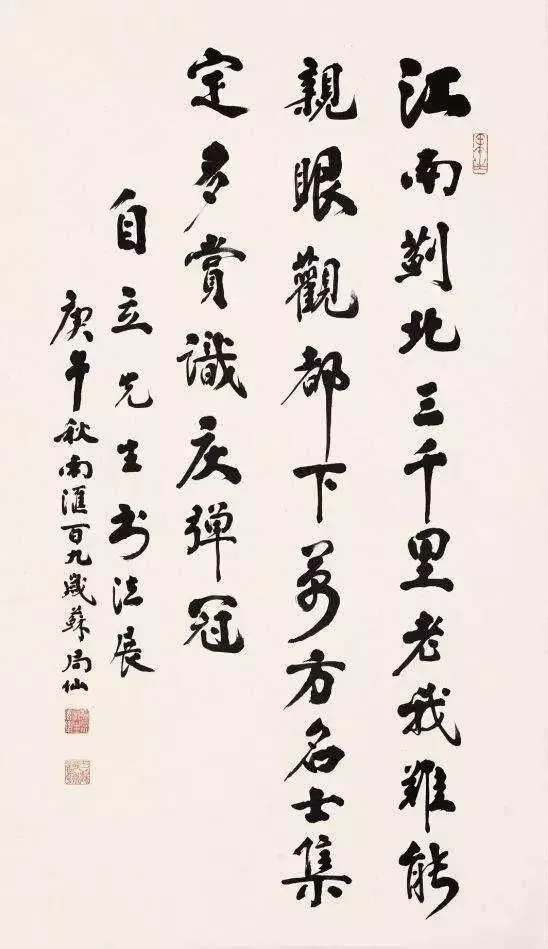 江南薊北三千里老我難能
親眼觀都下萬方名士集
定多賞識庆彈冠
自立先生书法展
庚午秋南滙百九歲蘇局仙